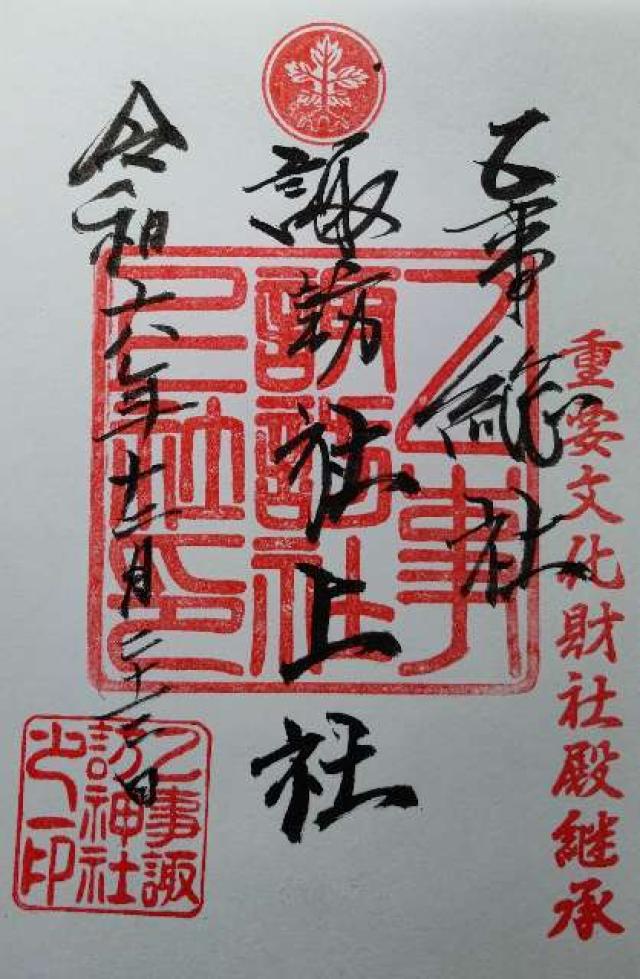 重要文化財社殿継承
乙事総社
諏訪社上社
令和六年十二月二十日
乙事
諏訪社
上社印
乙事諏
訪神社
之印